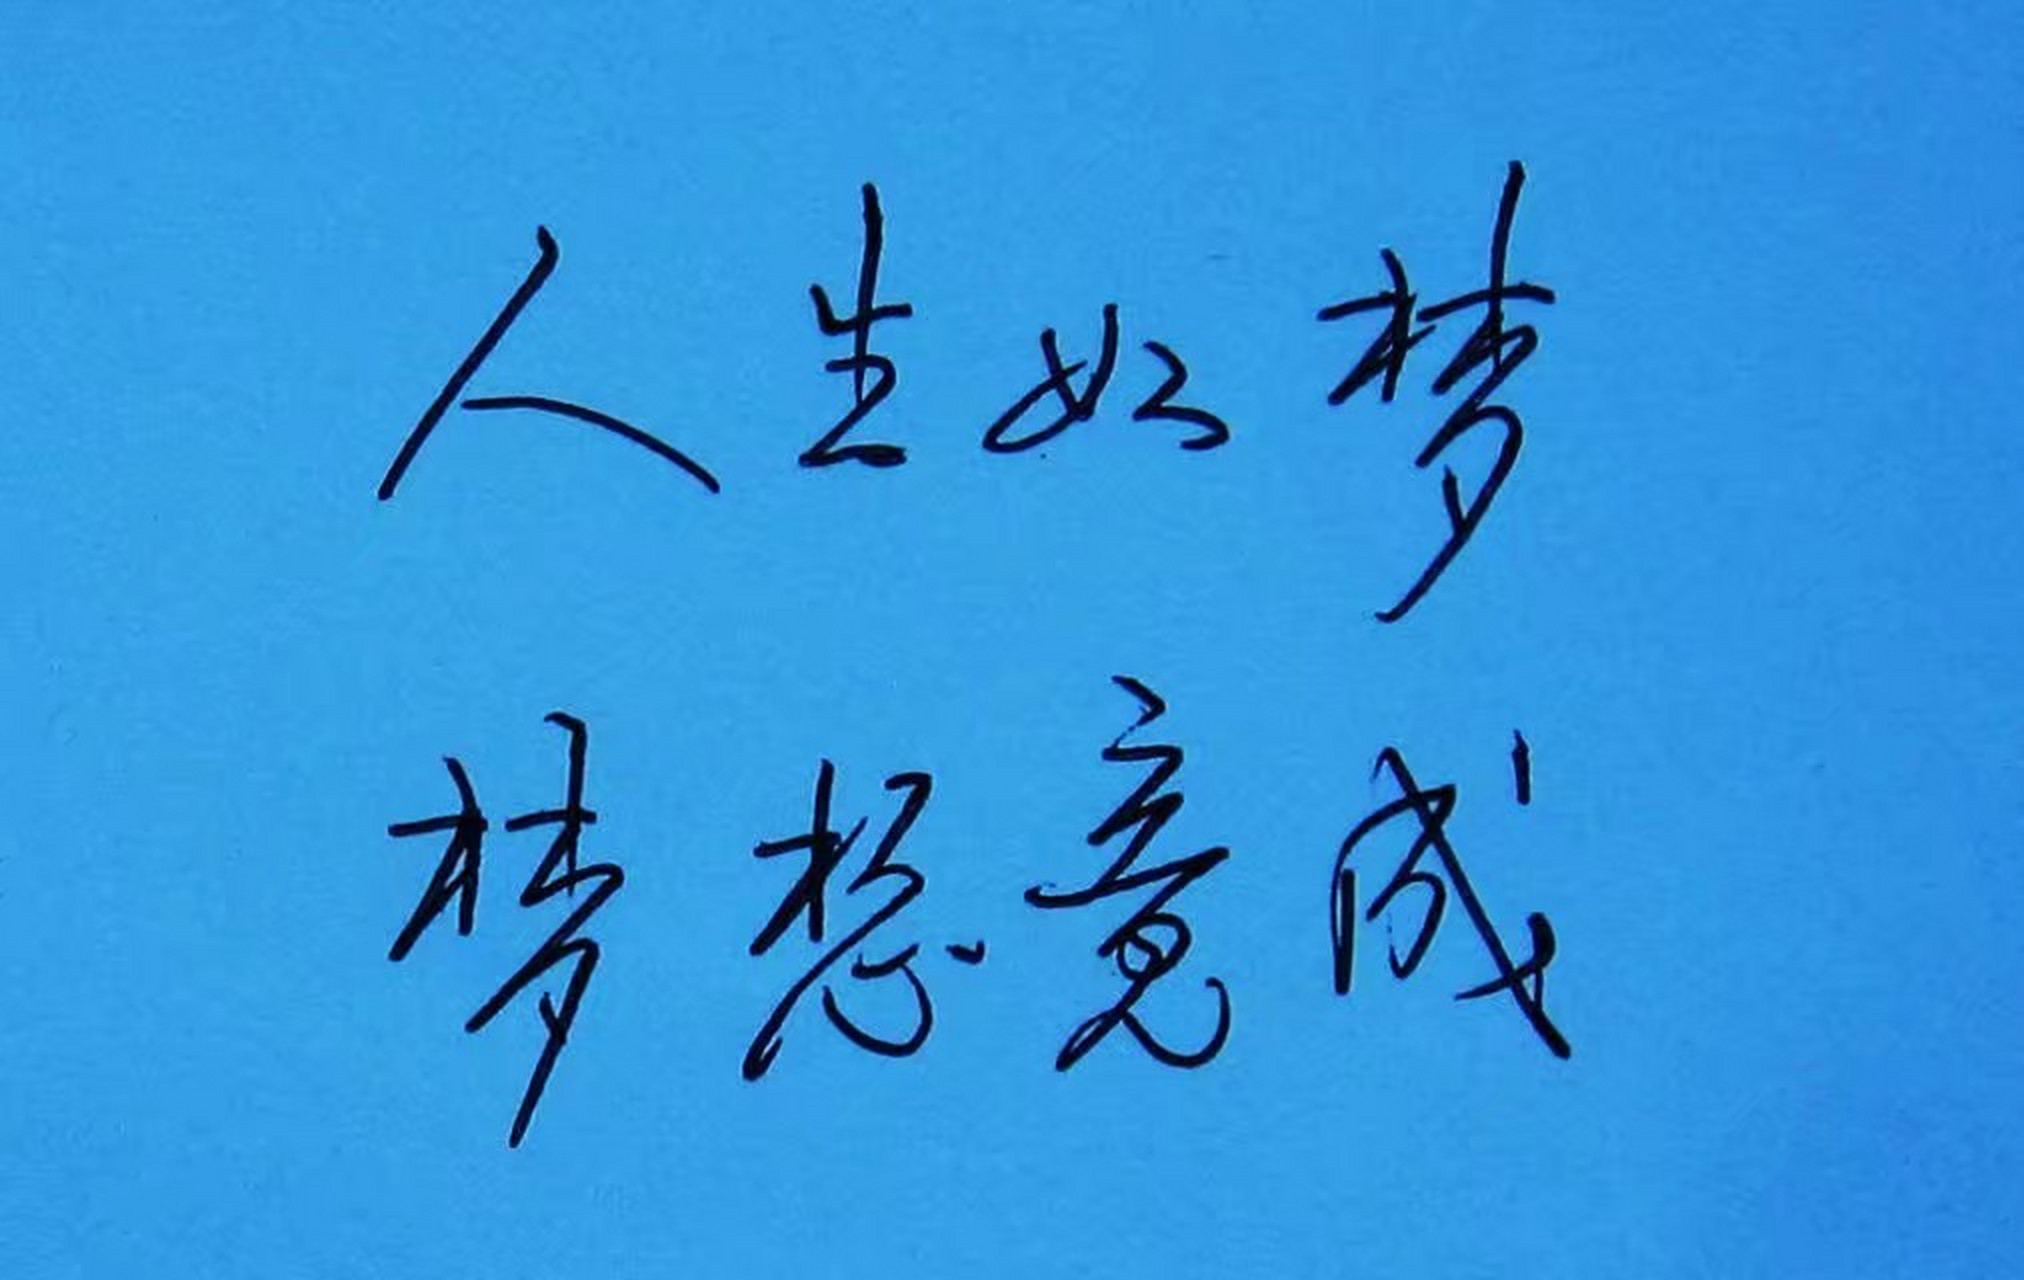 人生如梦
梦想竟成